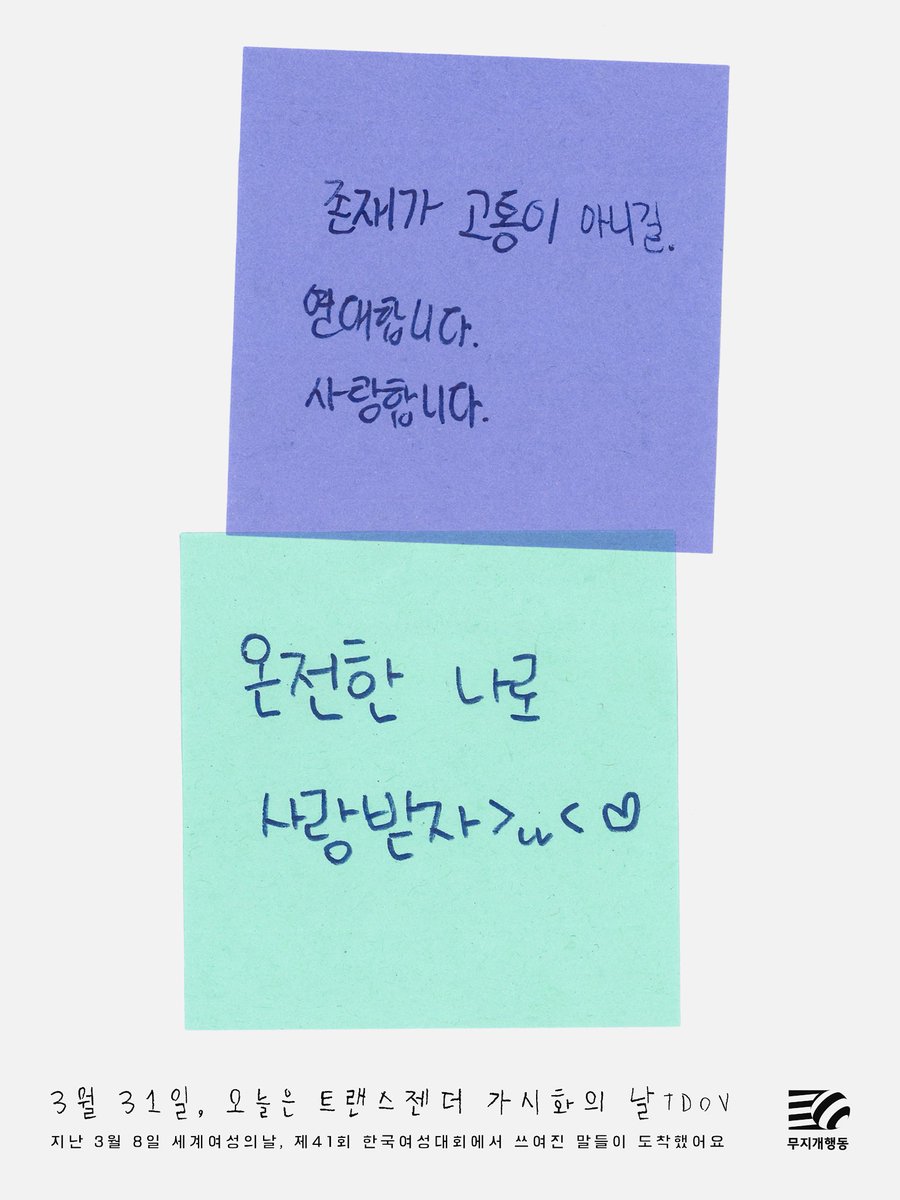 존재가 고통이 아니길.
연대합니다.
사랑합니다.
온전한 나로
사랑받자>ᴗᴗ<♡
3월 31일, 오늘은 트랜스젠더 가시화의 날 TDOV
지난 3월 8일 세계여성의날, 제41회 한국여성대회에서 쓰여진 말들이 도착했어요
무지개행동